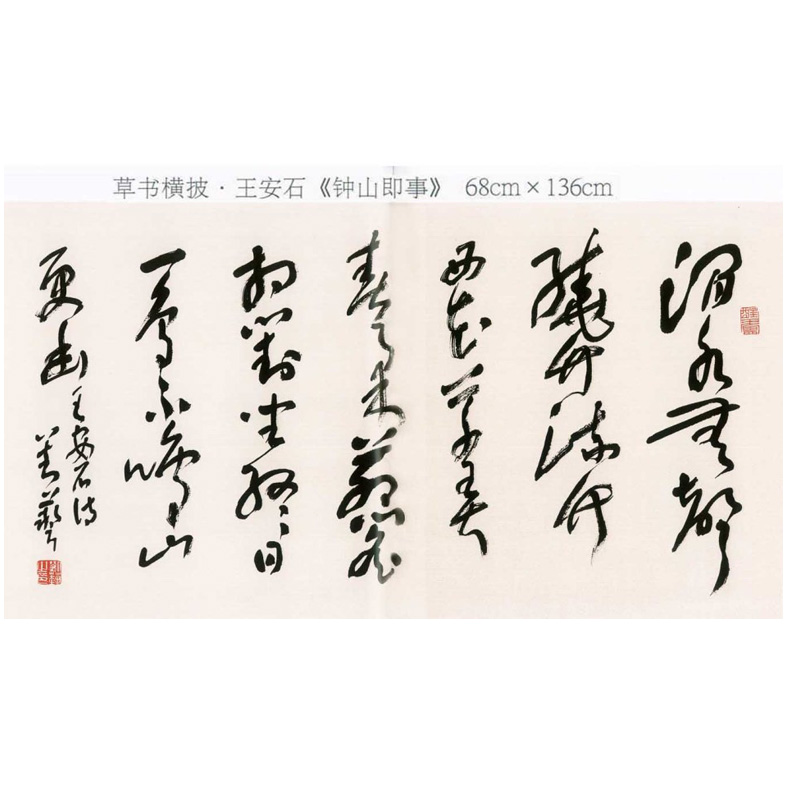 草书横披·王安石《钟山即事》 68cm×136cm
澗水無聲
繞竹流竹
西花草
春柔茅簷
相對坐終日
一鳥不鳴山
更幽 王安石诗